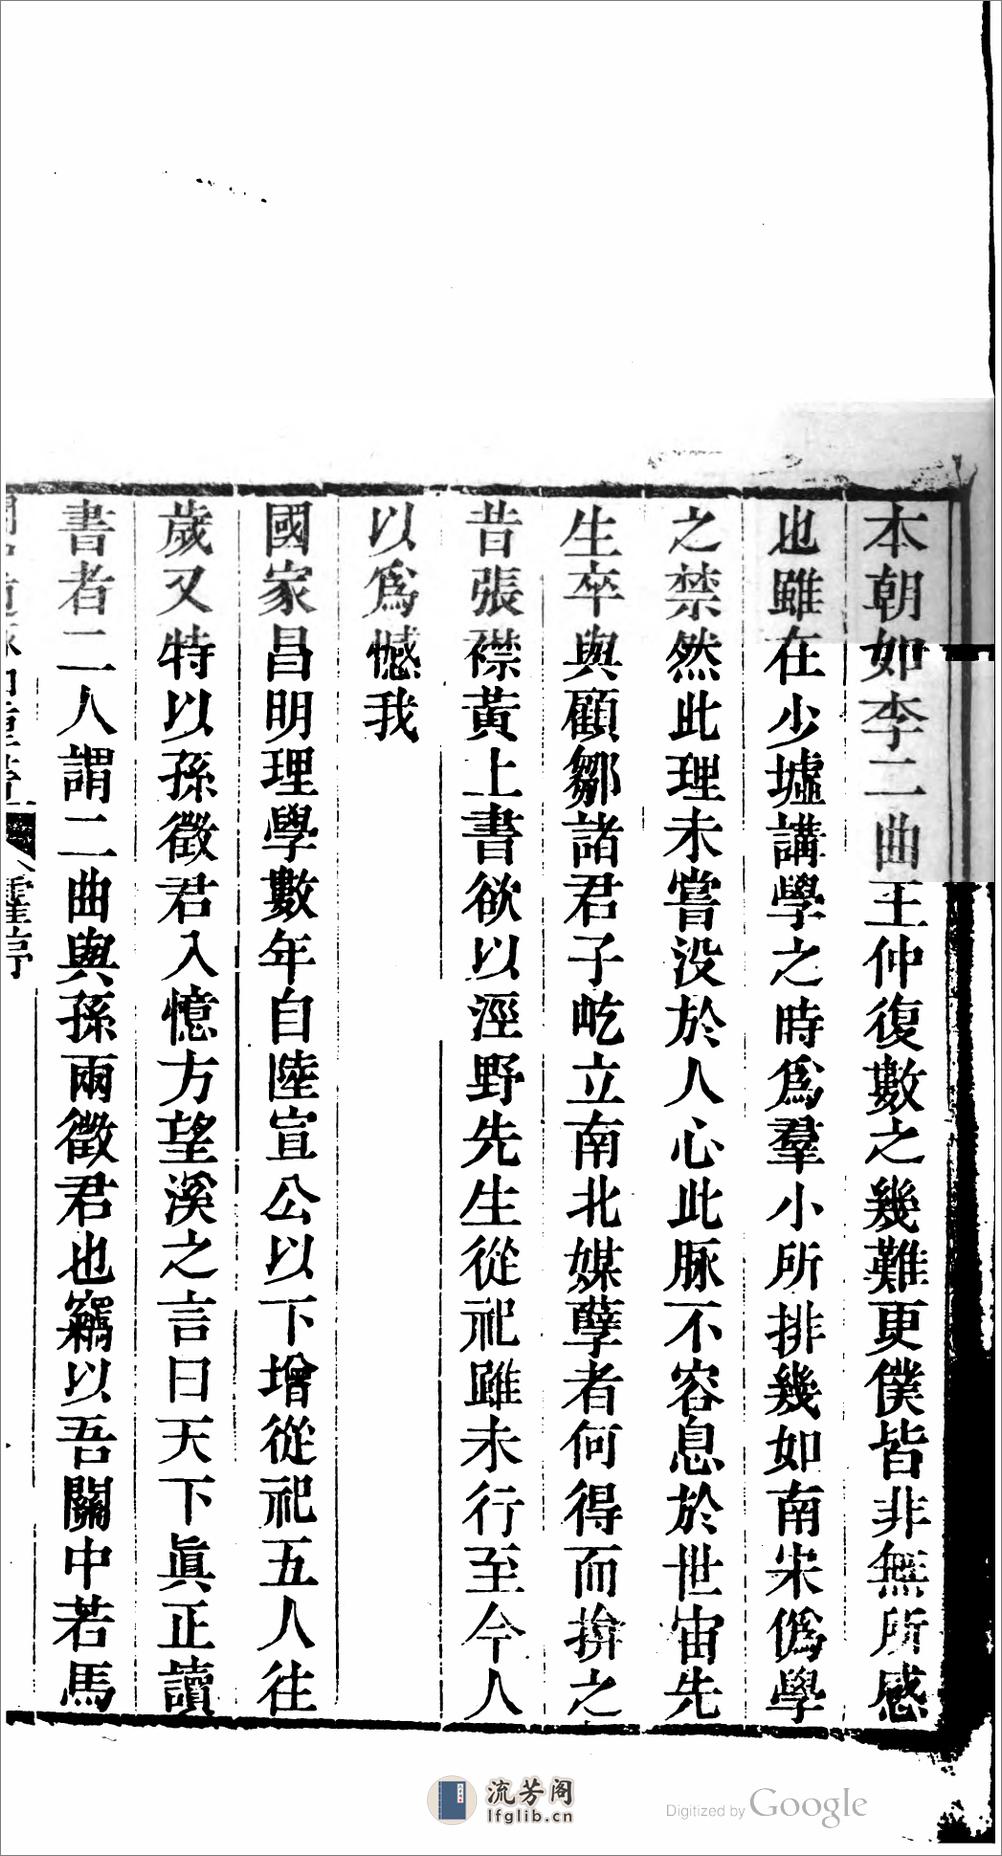 本朝如李二曲王仲復數之幾難更僕皆非無所感
也雖在少墟講學之時爲羣小所排幾如南宋僞學
之禁然此理未嘗没於人心此脈不容息於世宙先
生卒與顧鄒諸君子屹立南北媒孽者何得而揜之
昔張襟黃上書欲以涇野先生從祀雖未行至今人
以爲憾我
國家昌明理學數年自陸宣公以下增從祀五人往
歲又特以孫徵君入憶方望溪之言曰天下眞正讀
書者二人謂二曲與孫兩徵君也竊以吾關中若馬
流芳阁
lfglib.cn
Digitized by Google